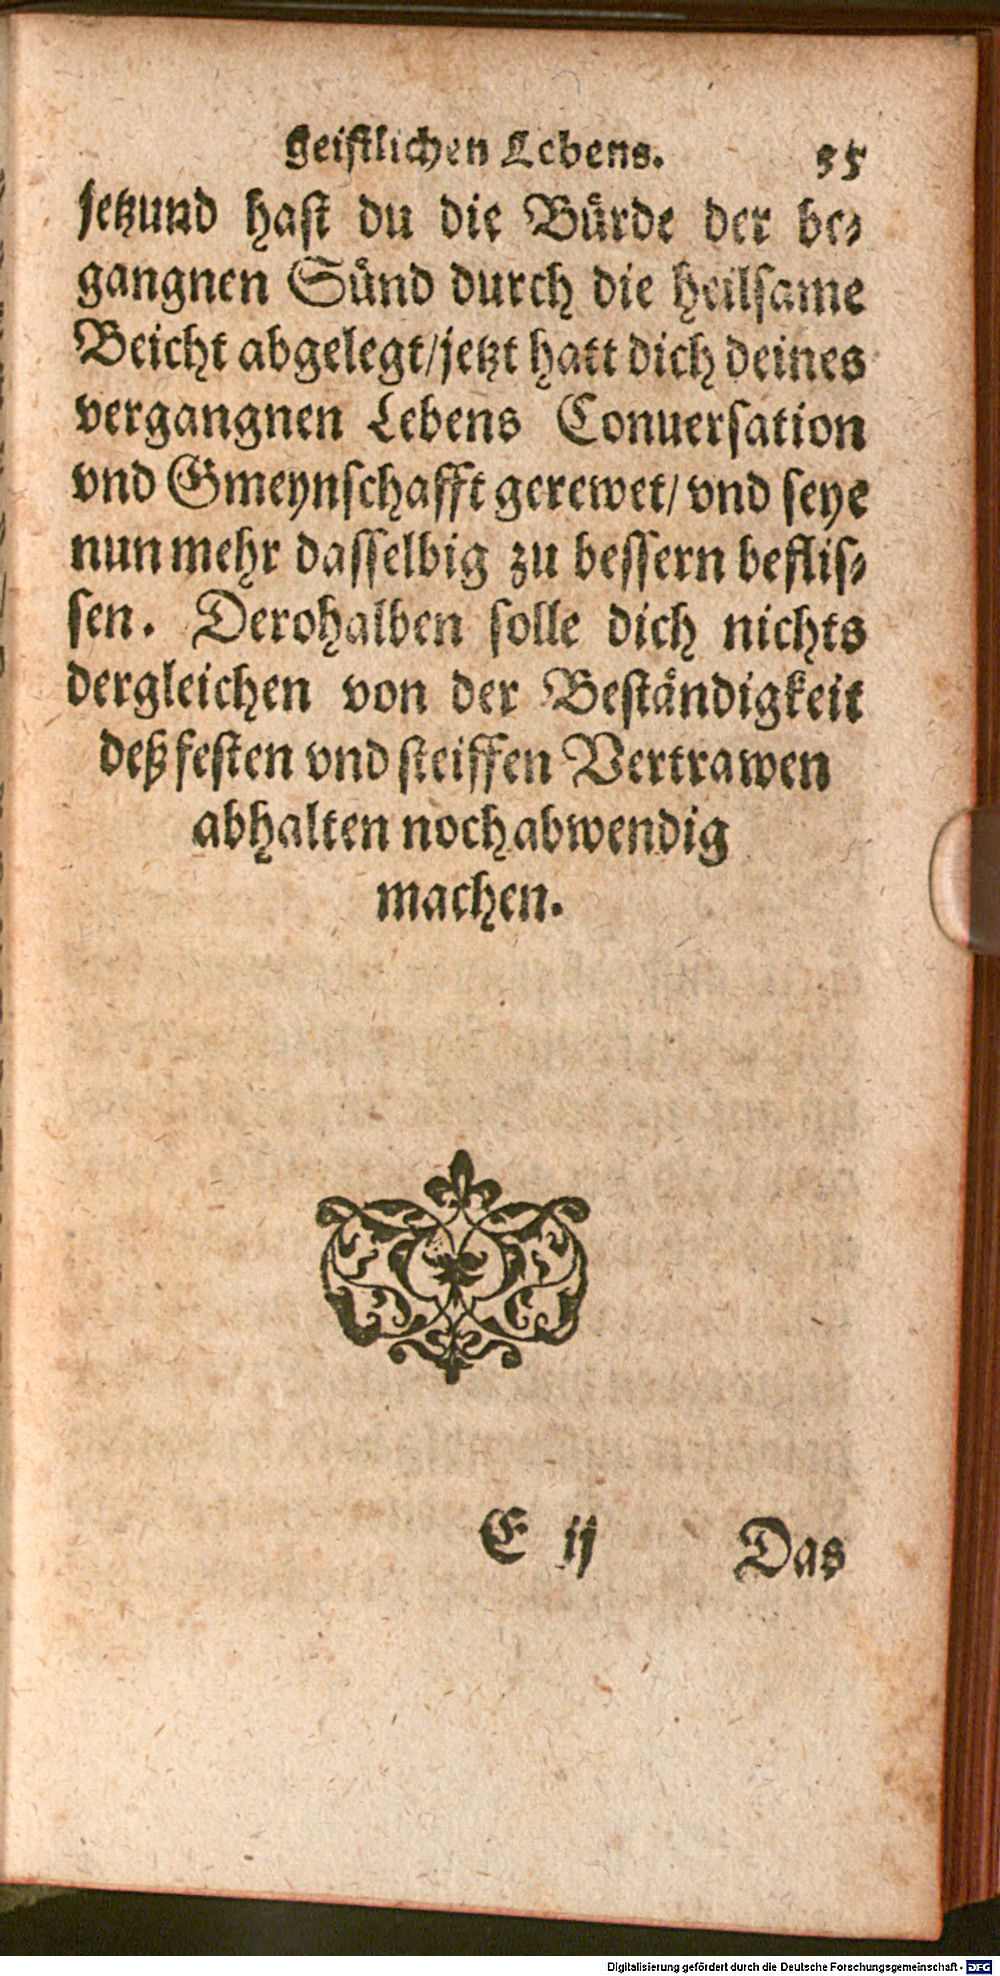 geistlichen Lebens. 55
jetzund hast du die Bürde der be-
gangnen Sünd durch die heilsame
Beicht abgelegt/ jetzt hatt dich deines
vergangnen Lebens Conuersation
vnd Gmeynschafft gerewet/ vnd seye
nun mehr dasselbig zu bessern beflis-
sen. Derohalben solle dich nichts
dergleichen von der Beständigkeit
deß festen vnd steiffen Vertrawen
abhalten noch abwendig
machen.
E ij Das
Digitalisierung gefördert durch die Deutsche Forschungsgemeinschaft - DFG